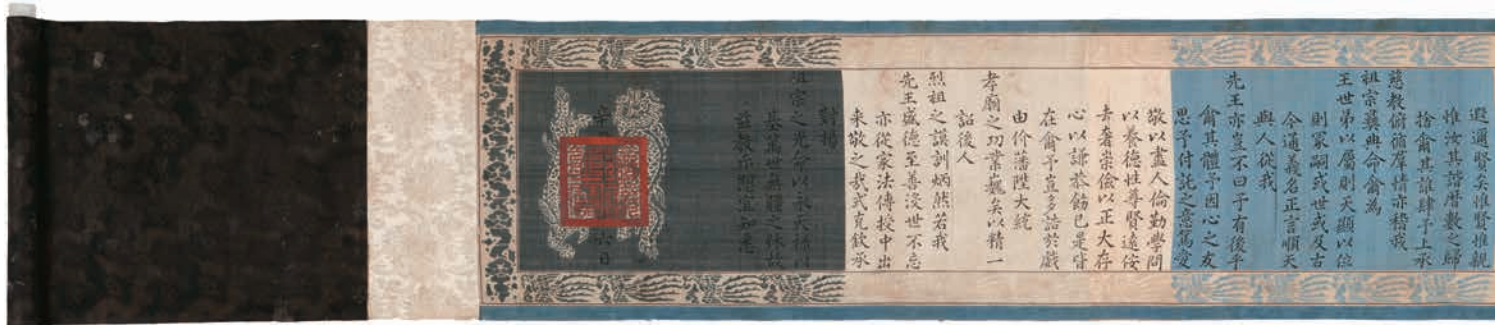 遐邇賢矣推賢推親
惟汝其諧曆數之歸
捨爾其誰肆予上承
慈教俯循羣情亦稽我
祖宗彝典命爾為
王世弟以屬則天顯以位
則冢嗣或世或及古
今通義名正言順天
與人從我
先王亦豈不曰予有後乎
爾其體予因心之友
思予付託之意篤愛
敬以盡人倫勤學問
以養德性尊賢遠佞
去奢崇儉以正大存
心以謙恭飭己是皆
在爾予豈多誥於戲
由价藩陞大統
孝廟之功業巍矣以精一
詔後人
烈祖之謨訓炳然若我
先王盛德至善沒世不忘
亦從家法傳授中出
來敬之哉式克欽承
對揚
祖宗之光命以永天祿以
基萬世無疆之休故
茲教示想宜知悉
六日